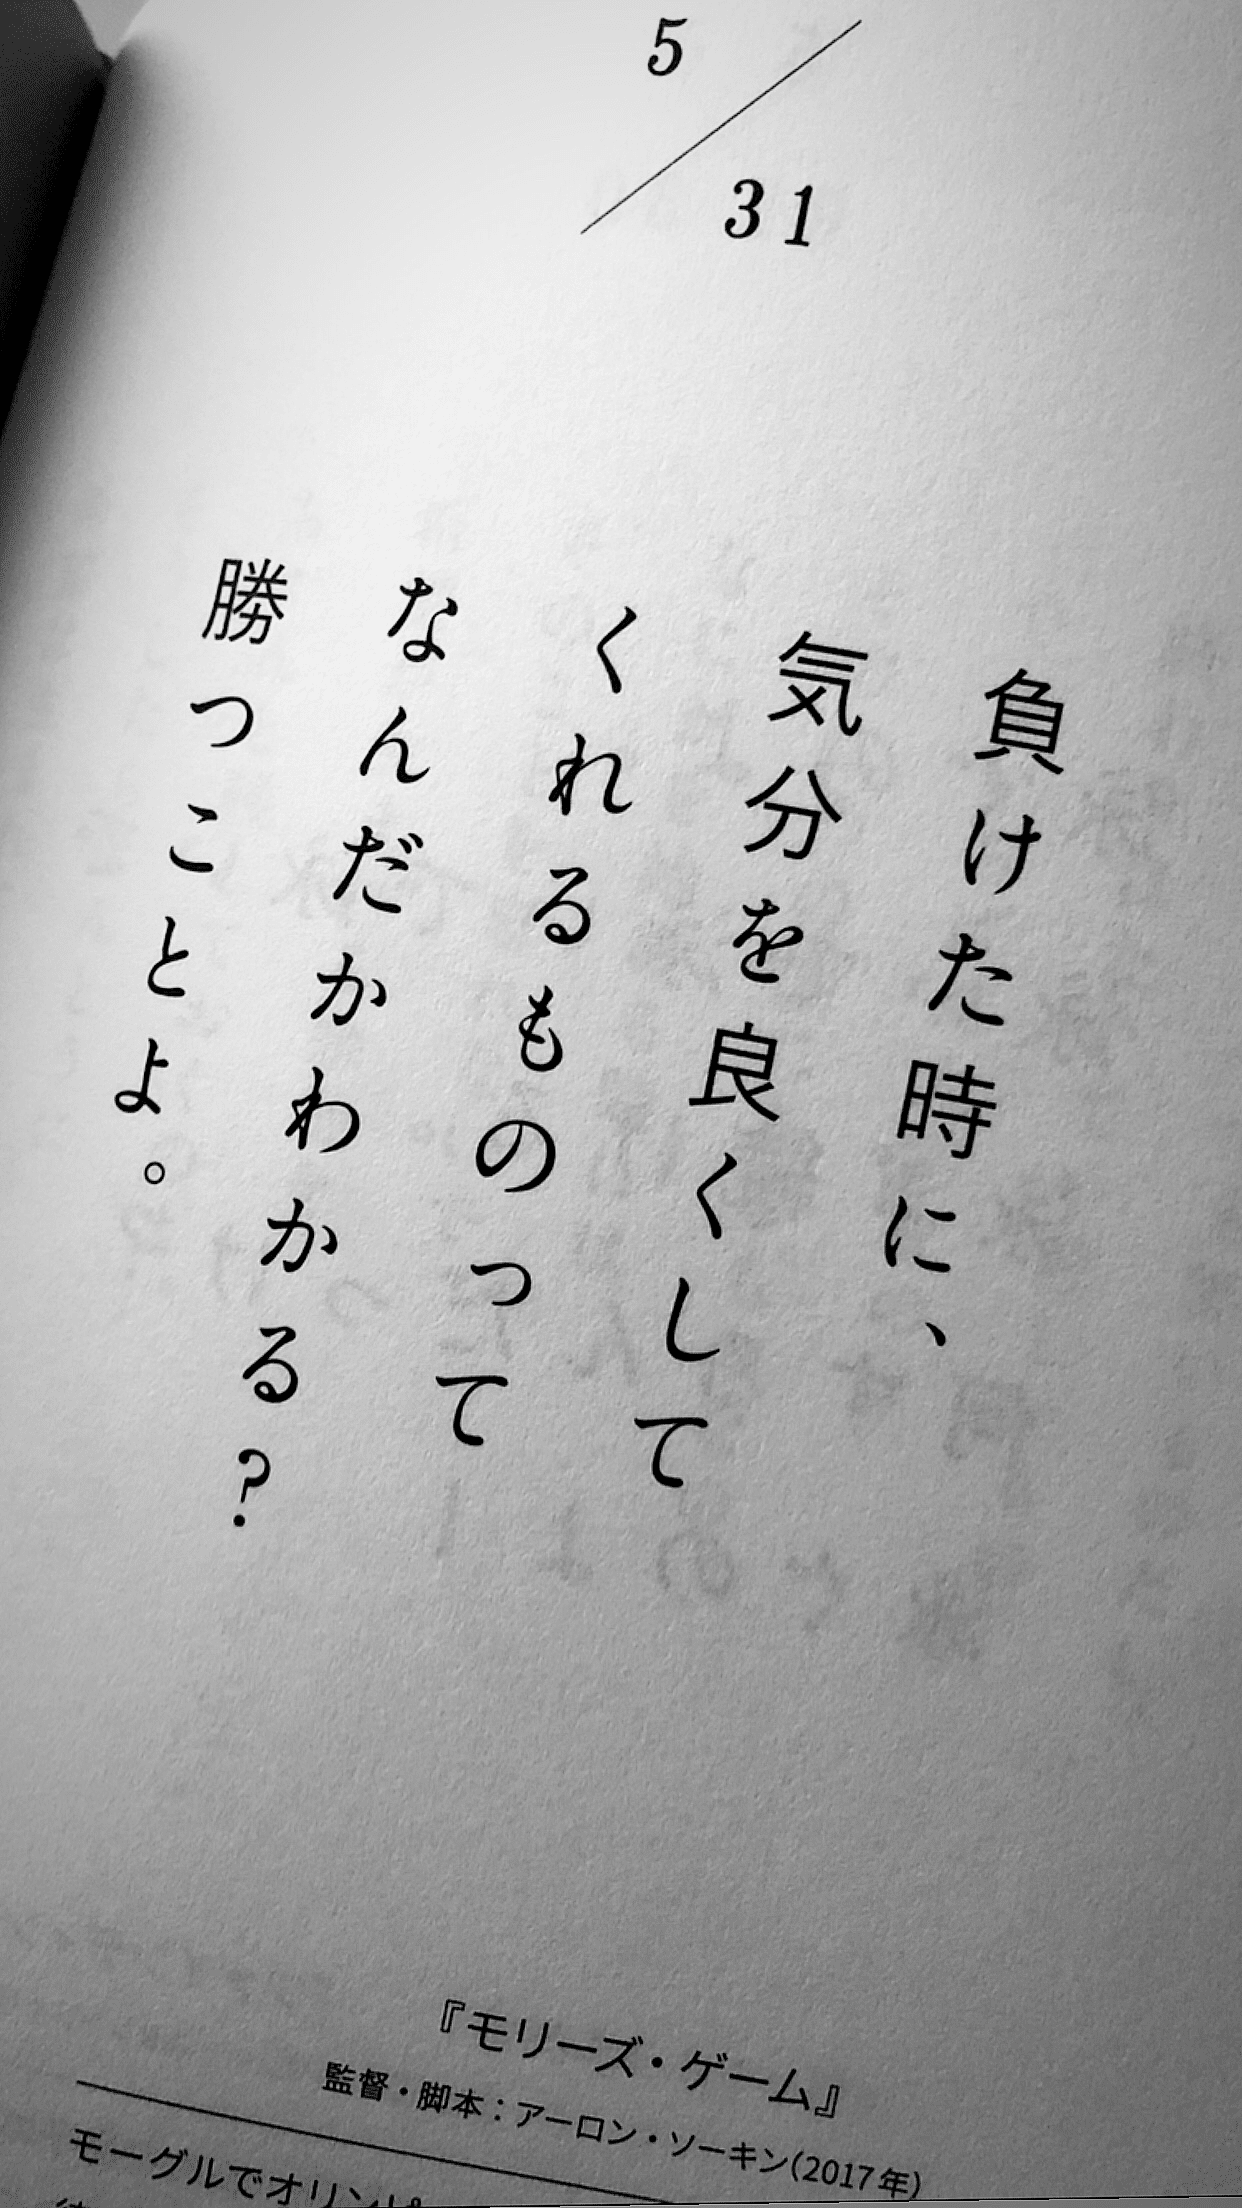 5/31
負けた時に、
気分を良くして
くれるものって
なんだかわかる?
勝つことよ。
『モリーズ・ゲーム』
監督・脚本:アーロン・ソーキン(2017年)
モーグルでオリンピ